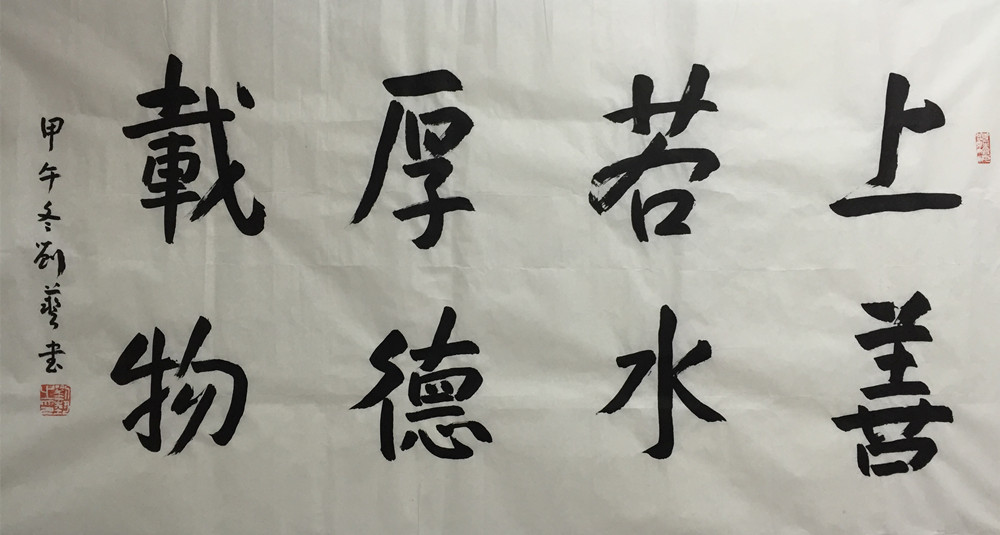 上善
若水
厚德
載物
甲午冬劉藝書